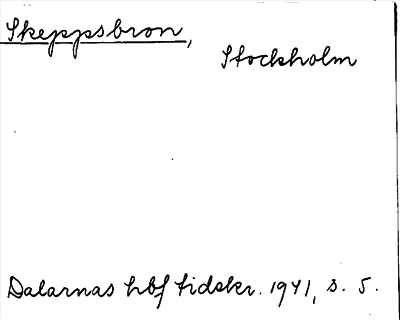 Skeppsbron,
Stockholm
Dalarnas hbf tidskr. 1941, s. 5.